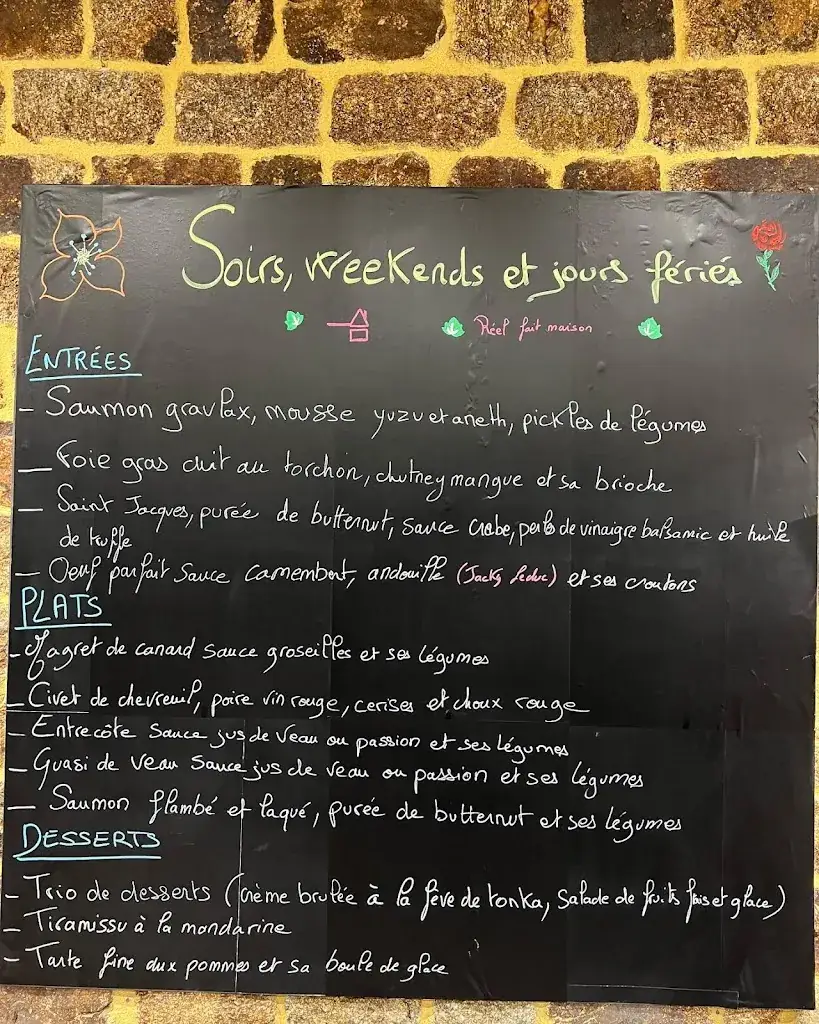 Soirs, weekends et jours fériés
Réel fait maison
ENTRÉES
- Saumon gravlax, mousse yuzu et aneth, pickles de légumes
- Foie gras cuit au torchon, chutney mangue et sa brioche
- Saint Jacques, purée de butternut, sauce crabe, perles de vinaigre balsamic et huile
de truffe
- Oeuf parfait sauce camembert, andouille (Jacky Leduc) et ses croutons
PLATS
- Magret de canard sauce groseilles et ses légumes
- Civet de chevreuil, poire vin rouge, cerises et choux rouge
- Entrecôte sauce jus de veau ou passion et ses légumes
- Quasi de veau sauce jus de veau ou passion et ses légumes
- Saumon flambé et laqué, purée de butternut et ses légumes
DESSERTS
- Trio de desserts (crème brulée à la fève de tonka, salade de fruits frais et glace)
- Tiramissu à la mandarine
- Tarte fine aux pommes et sa boule de glace